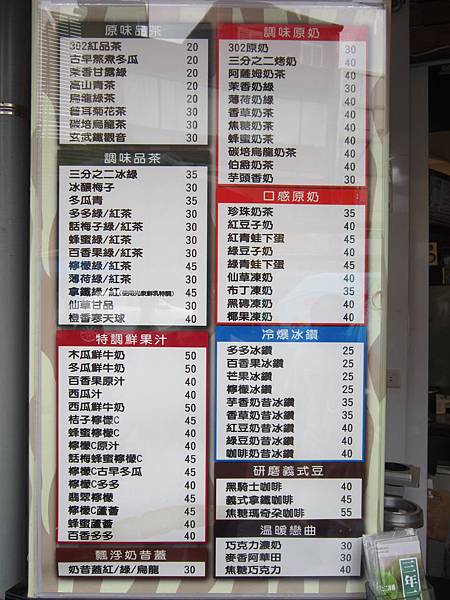 原味品茶
302紅品茶 20
古早熬煮冬瓜 20
茉香甘露綠 20
高山青茶 20
烏龍綠茶 20
普耳菊花茶 30
碳培烏龍茶 30
玄武鐵觀音 30
調味品茶
三分之二冰綠 35
冰釀梅子 30
冬瓜青 35
多多綠/紅茶 30
話梅子綠/紅茶 30
蜂蜜綠/紅茶 30
百香果綠/紅茶 30
檸檬綠/紅茶 45
薄荷綠/紅茶 30
拿鐵綠/紅(使用光泉鮮乳特調) 45
仙草甘品 30
橙香寒天球 40
特調鮮果汁
木瓜鮮牛奶 50
冬瓜鮮牛奶 50
百香果原汁 40
西瓜汁 40
西瓜鮮牛奶 50
桔子檸檬C 45
蜂蜜檸檬C 40
檸檬C原汁 40
話梅蜂蜜檸檬C 45
檸檬C古早冬瓜 45
檸檬C多多 40
翡翠檸檬 45
檸檬C蘆薈 45
蜂蜜蘆薈 40
百香多多 40
飄浮奶昔蓋
奶昔蓋紅/綠/烏龍 30
調味原奶
302原奶 30
三分之二烤奶 40
阿薩姆奶茶 40
茉香奶綠 30
薄荷奶綠 40
香草奶茶 40
焦糖奶茶 40
蜂蜜奶茶 40
碳培烏龍奶茶 40
伯爵奶茶 40
芋頭香奶 30
口感原奶
珍珠奶茶 35
紅豆子奶 40
紅青蛙下蛋 45
綠豆子奶 40
綠青蛙下蛋 45
仙草凍奶 40
布丁凍奶 35
黑磚凍奶 40
椰果凍奶 40
冷爆冰鑽
多多冰鑽 25
百香果冰鑽 25
芒果冰鑽 25
檸檬冰鑽 25
芋香奶昔冰鑽 35
香草奶昔冰鑽 35
紅豆奶昔冰鑽 40
綠豆奶昔冰鑽 40
咖啡奶昔冰鑽 40
研磨義式豆
黑騎士咖啡 40
義式拿鐵咖啡 45
焦糖瑪奇朵咖啡 55
溫暖戀曲
巧克力濃奶 30
麥香阿華田 30
焦糖巧克力 40
三年